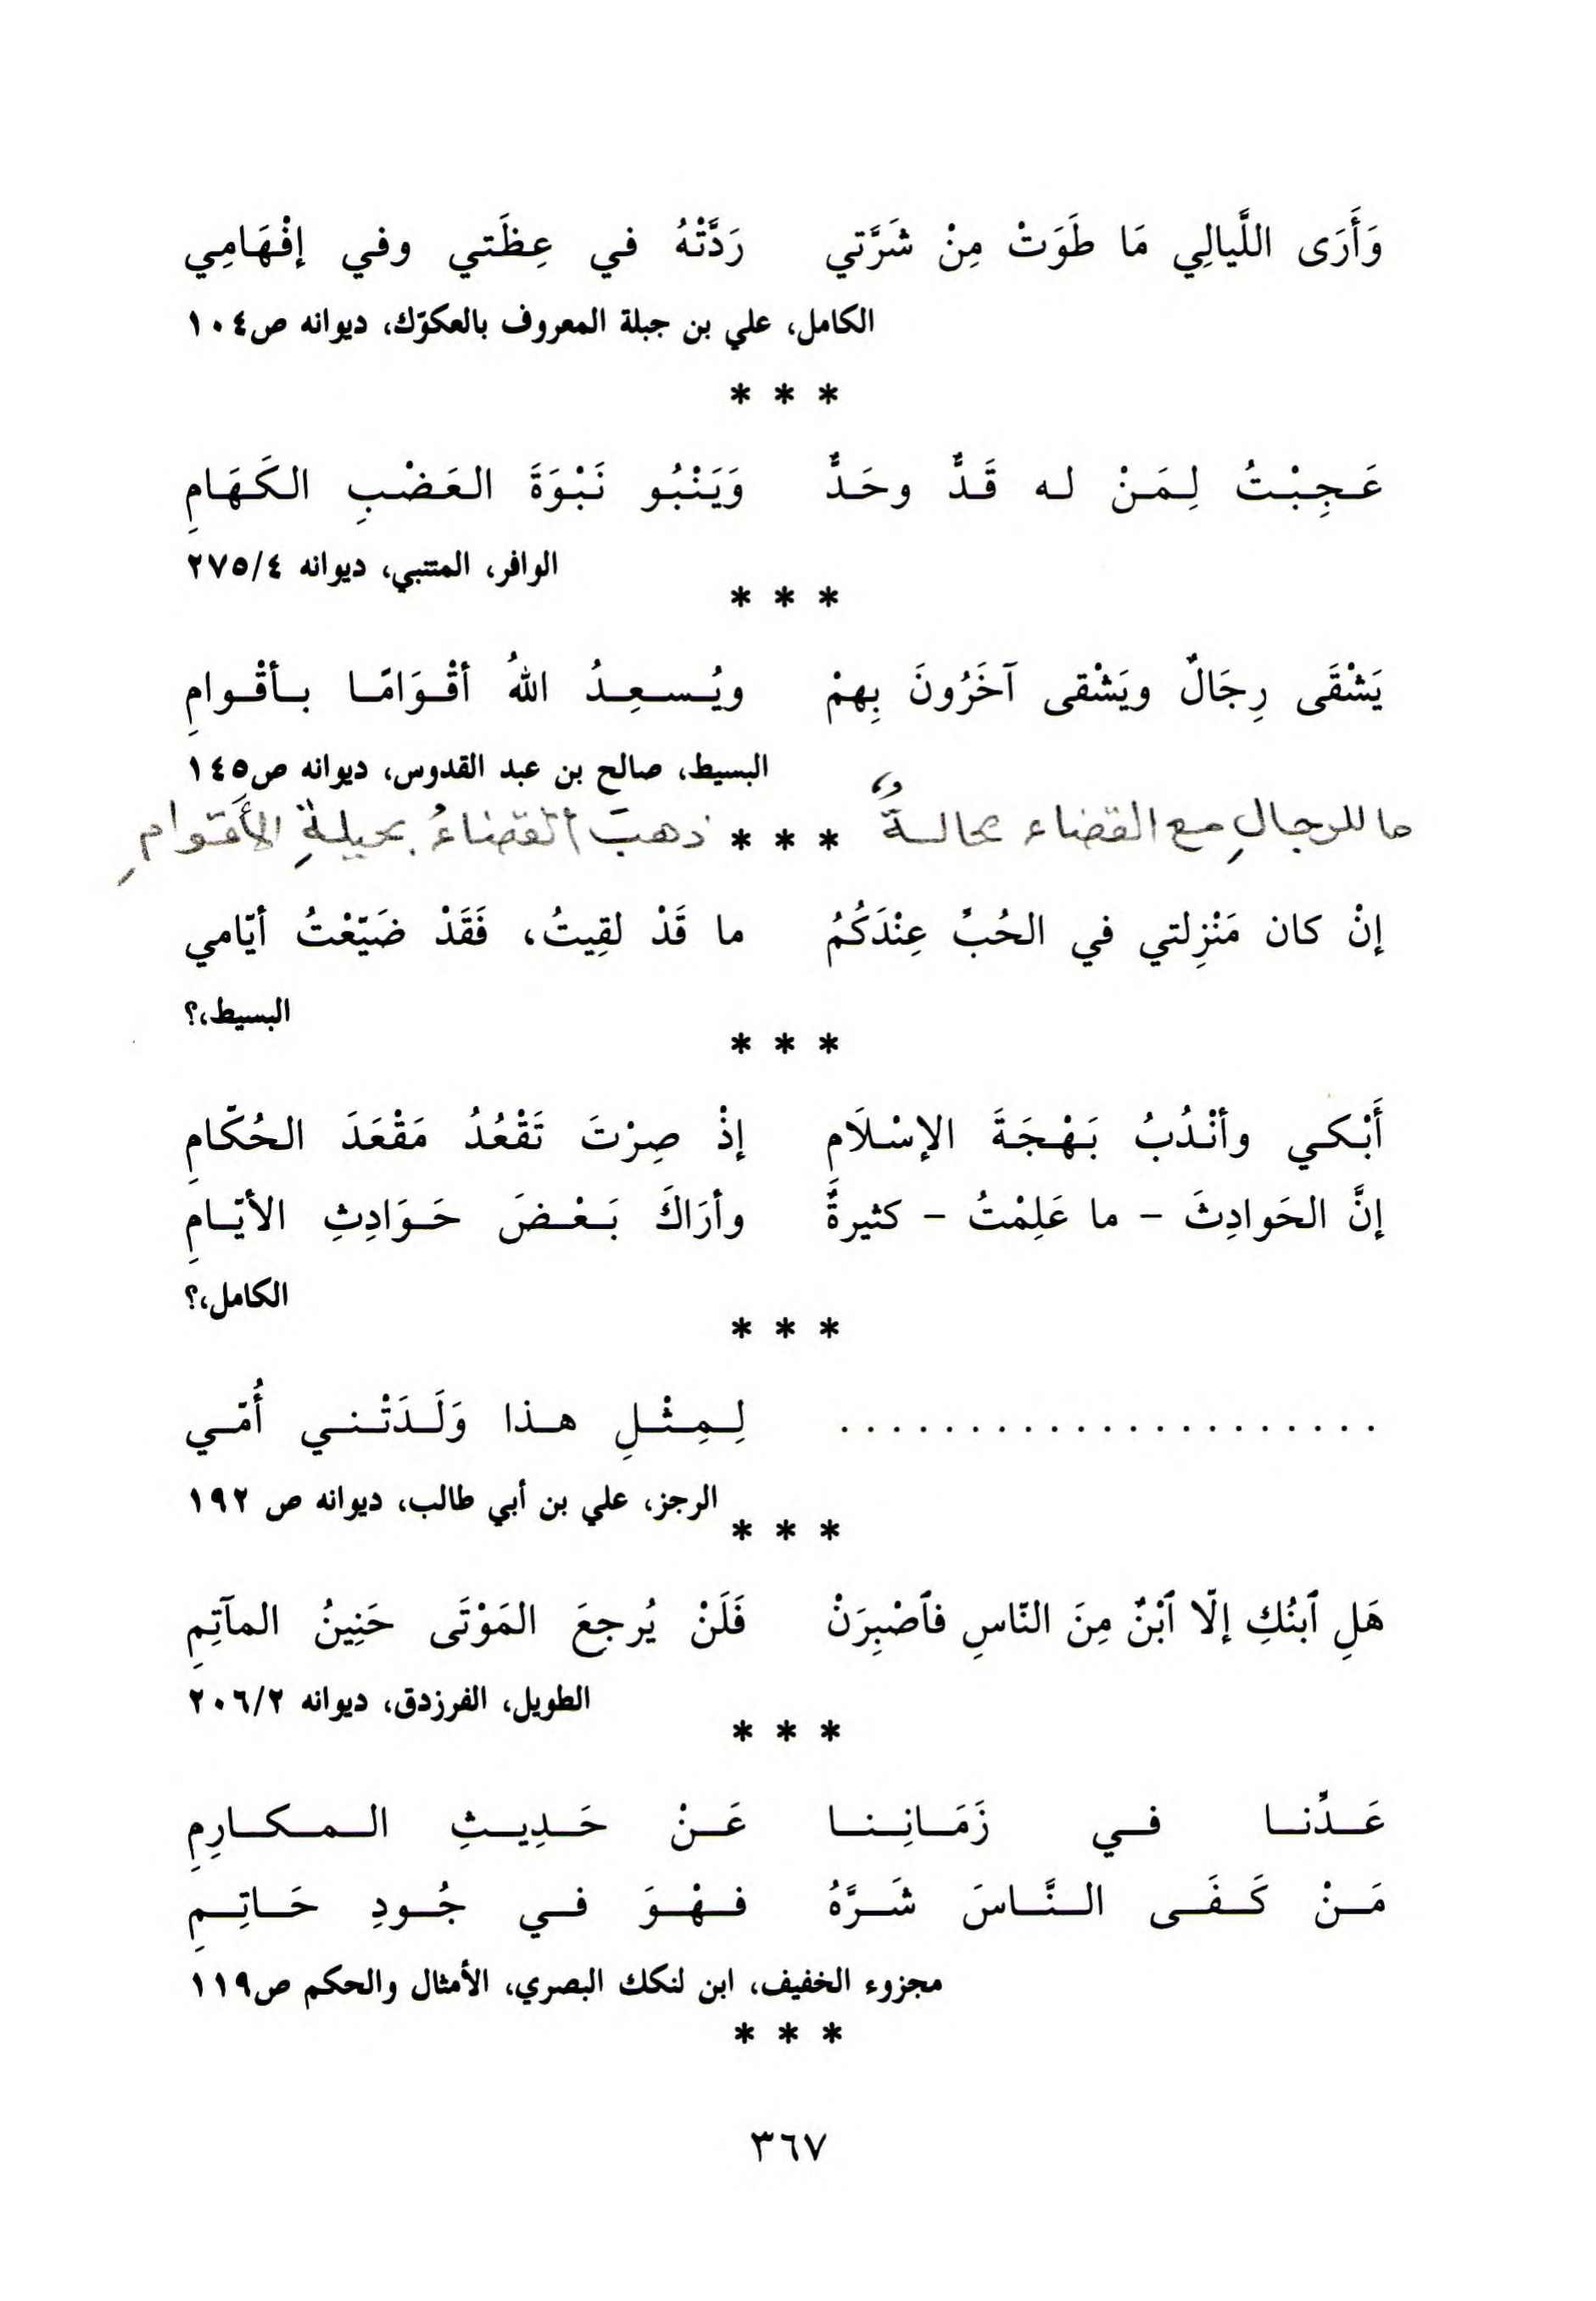 وَأَرَى اللَّيالِي مَا طَوَتْ مِنْ شَرَّتي رَدَّتْهُ في عِظَتي وفي إفْهَامِي
الكامل، علي بن جبلة المعروف بالعكوّك، ديوانه ص١٠٤
* * *
عَجِبْتُ لِمَنْ له قَدٌّ وحَدٌّ وَيَنْبُو نَبْوَةَ العَضْبِ الكَهَامِ
الوافر، المتنبي، ديوانه ٢٧٥/٤
* * *
يَشْقَى رِجَالٌ ويَشْقى آخَرُونَ بِهِمْ ويُسعِدُ اللهُ أقْوَامًا بأقْوامِ
البسيط، صالح بن عبد القدوس، ديوانه ص١٤٥
ما للرجالِ مع القضاء محالةٌ * * * ذهبَ القضاءُ بحيلةِ الأَقوامِ
إنْ كان مَنْزِلتي في الحُبِّ عِنْدَكُمُ ما قَدْ لقِيتُ، فَقَدْ ضَيّعْتُ أيّامي
البسيط،؟
* * *
أَبْكي وأنْدُبُ بَهْجَةَ الإسْلَامِ إذْ صِرْتَ تَقْعُدُ مَقْعَدَ الحُكّامِ
إنَّ الحَوادِثَ - ما عَلِمْتُ - كثيرةٌ وأرَاكَ بَعْضَ حَوَادِثِ الأيّامِ
الكامل،؟
* * *
..................... لِمِثْلِ هذا وَلَدَتْني أُمّي
الرجز، علي بن أبي طالب، ديوانه ص ١٩٢
* * *
هَلِ ٱبنُكِ إلّا ٱبْنٌ مِنَ النّاسِ فٱصْبِرَنْ فَلَنْ يُرجِعَ المَوْتَى حَنِينُ المآتِمِ
الطويل، الفرزدق، ديوانه ٢٠٦/٢
* * *
عَدِّنا في زَمَانِنا عَنْ حَدِيثِ المكارِمِ
مَنْ كَفَى النَّاسَ شَرَّهُ فهْوَ في جُودِ حَاتِمِ
مجزوء الخفيف، ابن لنكك البصري، الأمثال والحكم ص١١٩
* * *
٣٦٧